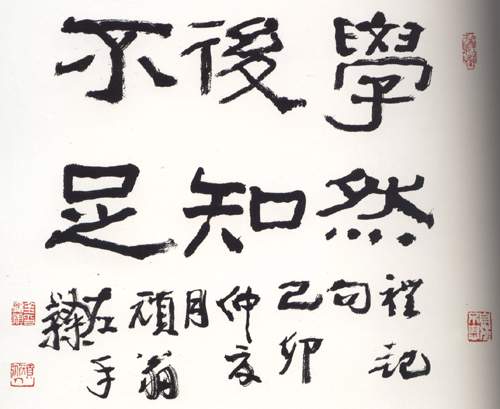 學然
後知
不足
禮記
句
己卯
仲夏
月
頑翁
左手
隸